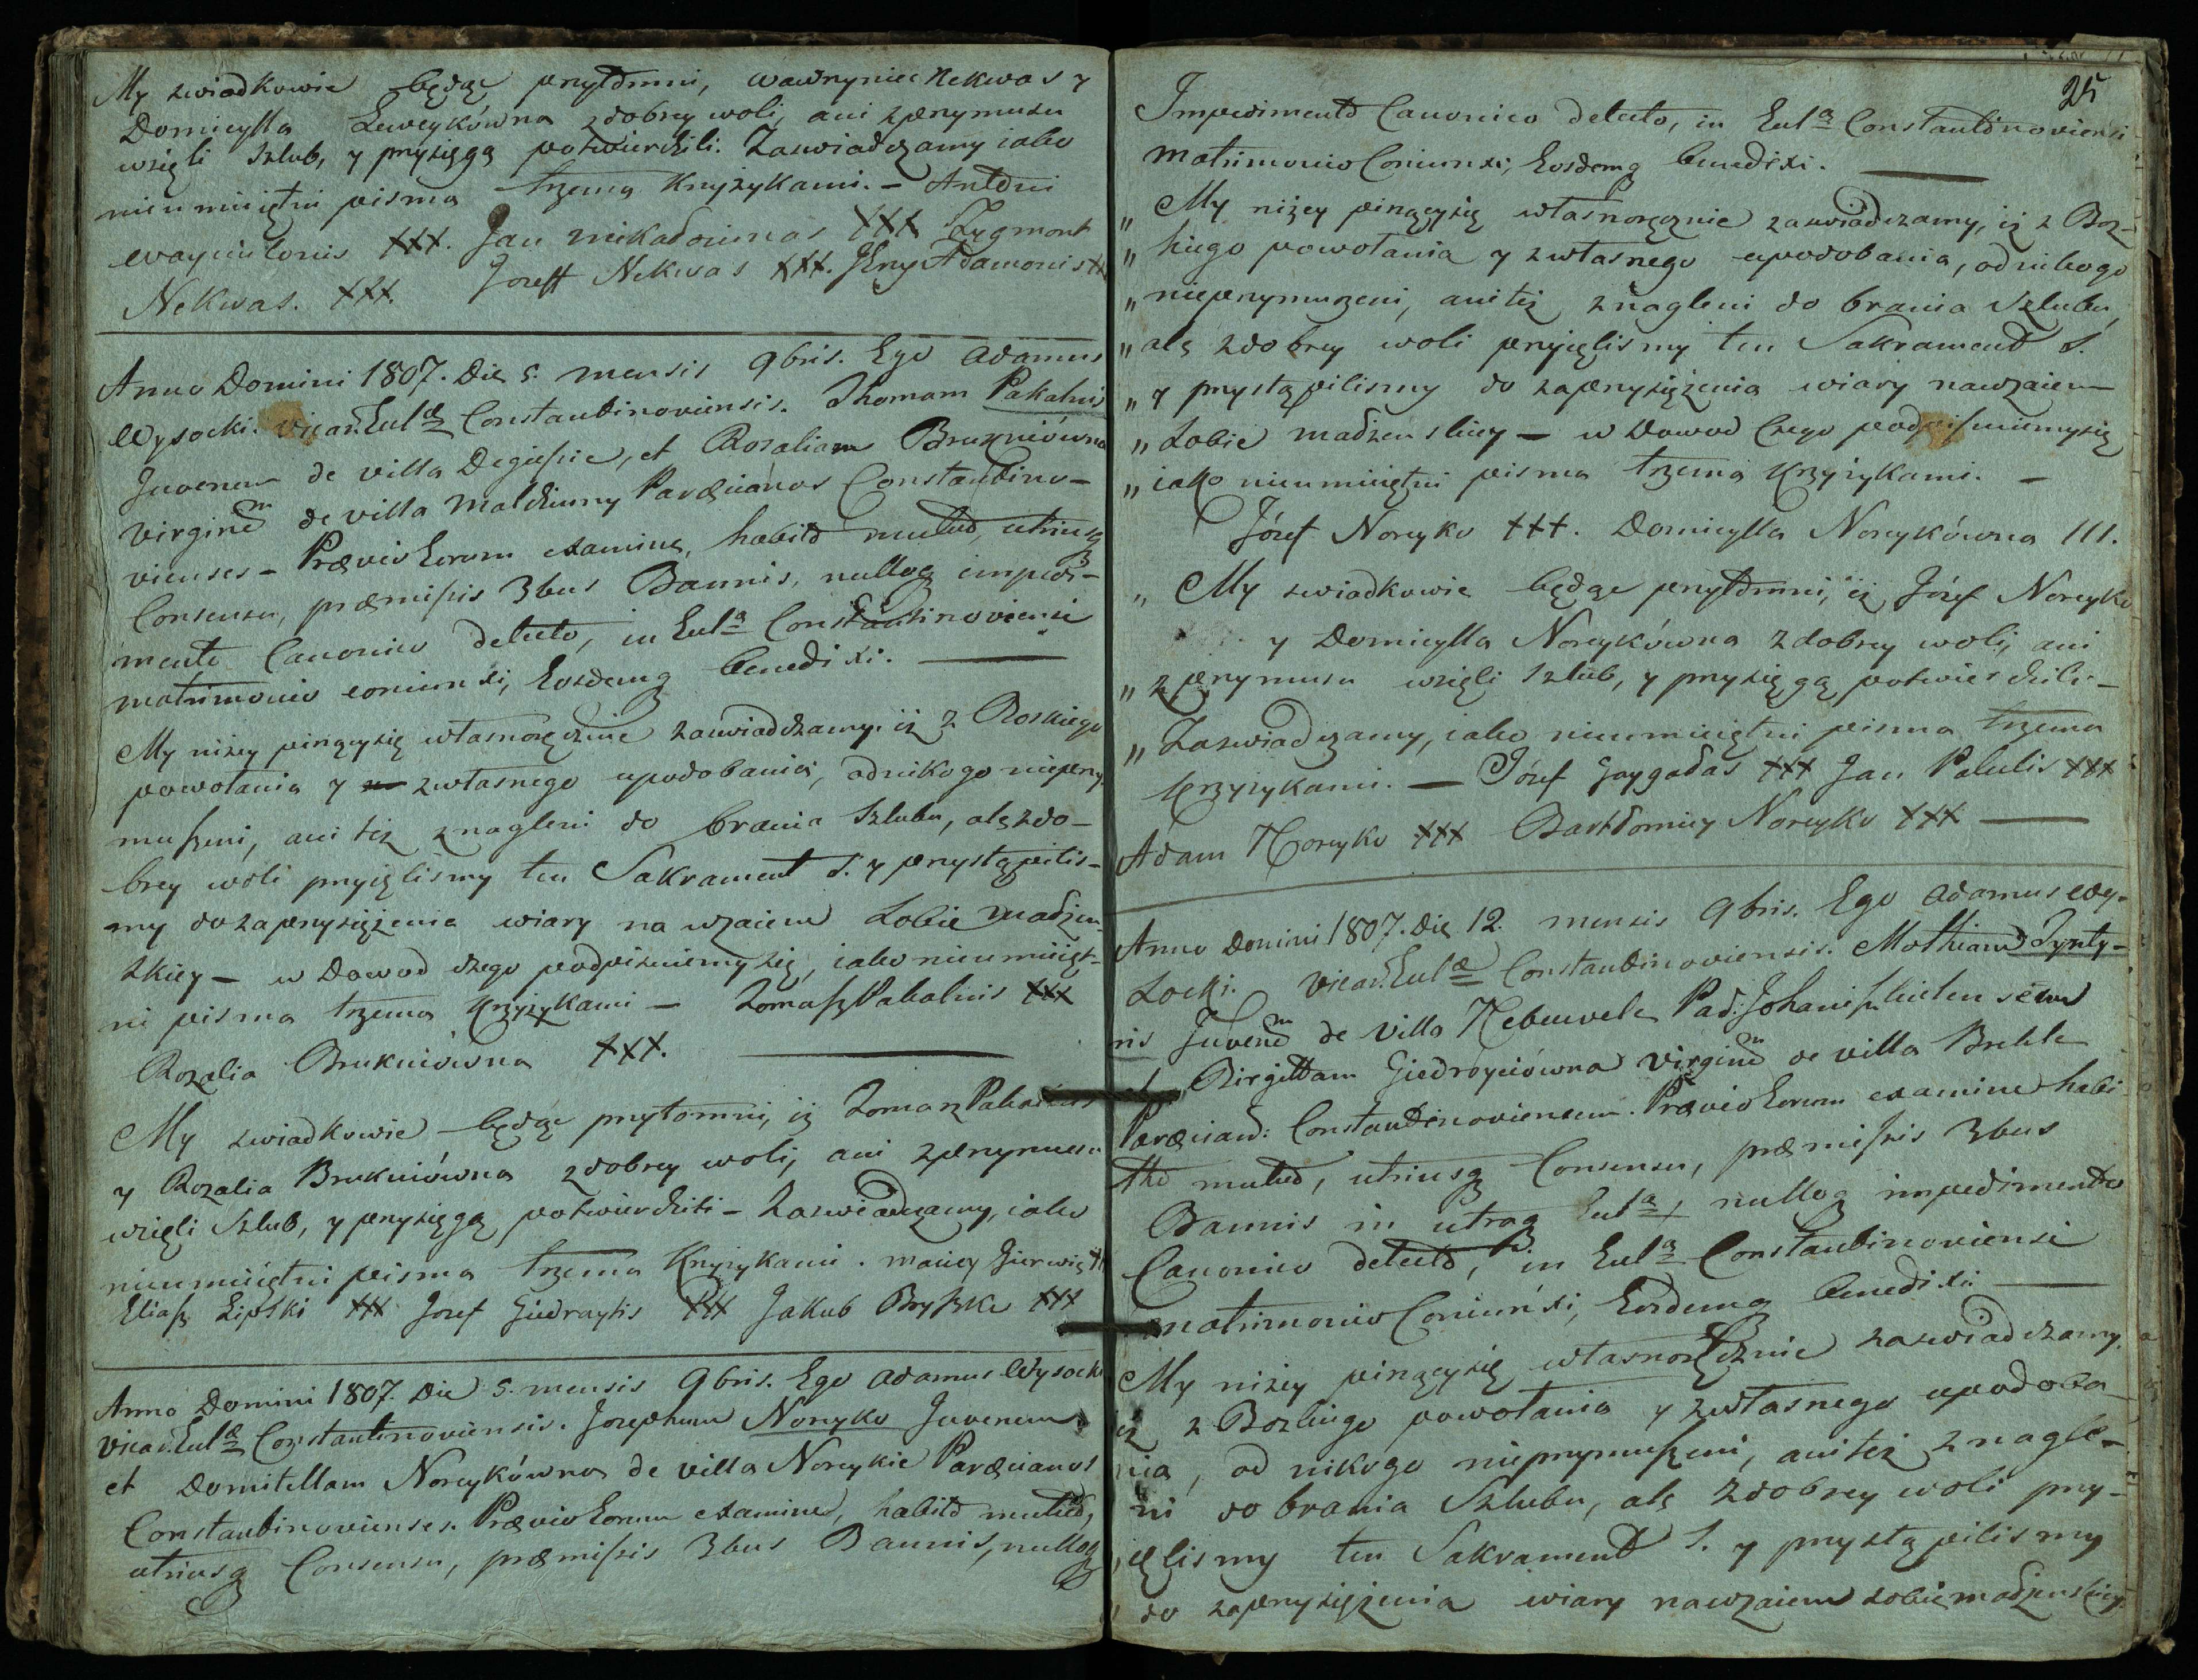 My zwiadkowie będąc przytomni, Wawrzyniec Nekwas y
Domicylla Leweykówna z dobrey woli, ani z przymusu
wzięli Szlub, y przysięgą potwierdzili. Zaswiadczamy iako
nieumiiętni pisma trzema Krzyżykami. – Antoni
XXX. Jan XXX Zygmont
Nekwas. XXX. Joseff Nekwas XXX. Jerzy Adamonis XX
Anno Domini 1807. Die 5. mensis 9bris. Ego Adamus
Wysocki. Vicar. Eccl&#x1d43; Constantinoviensis. Thomam Pakalnis
Juvenem de villa Degiesie, et Rozaliam Brukniówna
Virginem de villa Maldziuny Paræcianos Constantino-
vienses – Prævio Eorum examine, habito mutuo, utriusq
Consensu, præmissis 3bus Bannis, nulloq impedi-
mento Canonico detecto, in Eccla Constantinoviensi
matrimonio coniunxi, Eosdemq benedixi. ———
My niżey piszący się własnoręcznie zaswiadczamy. iż z Boskiego
powołania y z własnego upodobania, od nikogo nieprzy-
muszeni, ani też znagleni do brania Szlubu, ale z do-
brey woli przyięlismy ten Sakrament S. y przystąpilis-
my do zaprzysiężenia wiary na wzaiem Sobie madżen-
skiey – w Dowod czego podpisuiemy się, iako nieumiięt-
ni pisma trzema Krzyżykami – Tomasz Pakalnis XXX
Rozalia Brukniówna XXX. ———
My zwiadkowie będąc przytomni, iż Tomasz Pakalnis
y Rozalia Brukniówna z dobrey woli, ani z przymusu
wzięli Szlub, y przysięgą potwierdzili – Zaswiadczamy, iako
nieumiiętni pisma trzema Krzyżykami. Maciey
Eliasz Lipski XXX Jozef Giedraytis XXX Jakub Bryszka XXX
Anno Domini 1807. Die 5. mensis 9bris. Ego Adamus Wysocki
Vicar. Eccla Constantinoviensis. Josephum Noreyko Juvenem
et Domitellam Noreykówna de villa Noreykie Paræcianos
Constantinovienses. Prævio Eorum examine, habito mutuo,
utriusq Consensu, præmissis 3bus Bannis, nulloq
25
Impedimento Canonico detecto, in Eccla Constantinoviensi
matrimonio Coniunxi, Eosdemq benedixi. ———
„ My niżey piszący się własnoręcznie zaswiadczamy, iż z Boz-
„ kiego powołania y z własnego upodobania, od nikogo
„ nieprzymuszeni, ani też znagleni do brania Szlubu,
„ ale z dobrey woli przyięlismy ten Sakrament S.
„ y przystąpilismy do zaprzysiężenia wiary nawzaiem
„ Sobie madżenskiey – w Dowod Czego podpisuiemy się
„ iako nieumiiętni pisma trzema Krzyżykami. –
Józef Noreyko XXX. Domicylla Noreykówna III.
„ My zwiadkowie będąc przytomni, iż Józef Noreyko
y Domicylla Noreykówna z dobrey woli, ani
„ z przymusu wzięli Szlub, y przysięgą potwierdzili –
„ Zaswiadczamy, iako nieumiiętni pisma trzema
Krzyżykami. – Józef Gaygadas XXX Jan Palulis XXX
Adam Noreyko XXX Bartłomiey Noreyko XXX ———
Anno Domini 1807. Die 12. mensis 9bris. Ego Adamus Wy-
socki. Vicar. Eccla Constantinoviensis. Mathiam Tynty-
nis Juvenem de Villa
et Birgittam Giedroyciówna Virginem de villa
Paræcian: Constantinoviensem. Prævio Eorum examine habi-
tho mutuo, utriusq Consensu, præmissis 3bus
Bannis in utraq Eccla, nulloq impedimento
Canonico detecto, in Eccla Constantinoviensi
matrimonio Coniunxi, Eosdemq benedixi ———
My niżey piszący się własnoręcznie zaswiadczamy,
iż z Bozkiego powołania y z własnego upodoba
nia, od nikogo nieprzymuszeni, ani też znagle-
ni do brania Szlubu, ale z dobrey woli przy-
ięlismy ten Sakrament S. y przystąpilismy
do zaprzysiężenia wiary nawzaiem sobie madżenskiey